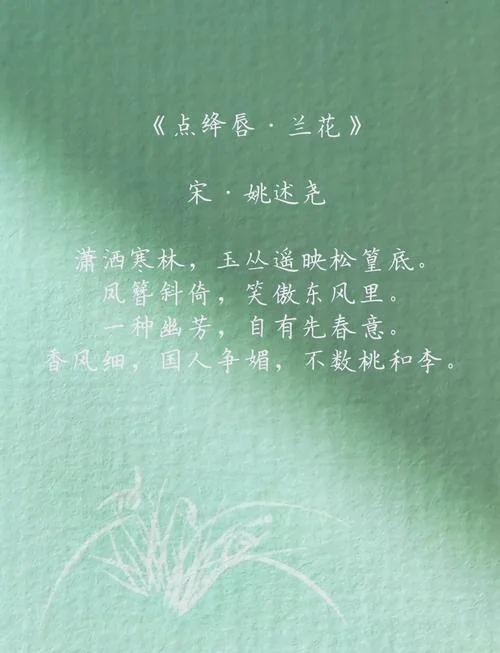 《点绛唇·兰花》
宋·姚述尧
潇洒寒林，玉丛遥映松篁底。
凤簪斜倚，笑傲东风里。
一种幽芳，自有先春意。
香风细，国人争媚，不数桃和李。